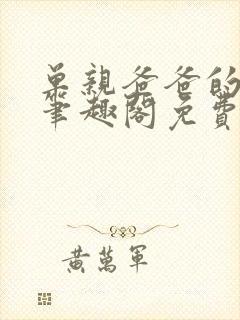 单親爸爸的
筆趣閣免費
黃萬軍